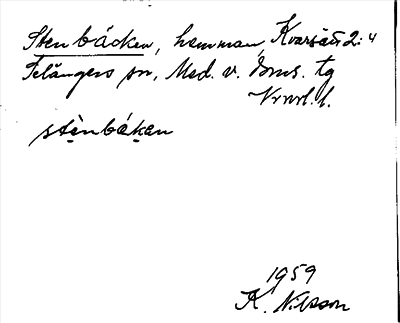 Stenbäcken, hemman, Kvarsätt 2:4
Selångers sn, Med. v. doms. tg
Vrnrl. l.
stènbäken
1959
K. Nilsson